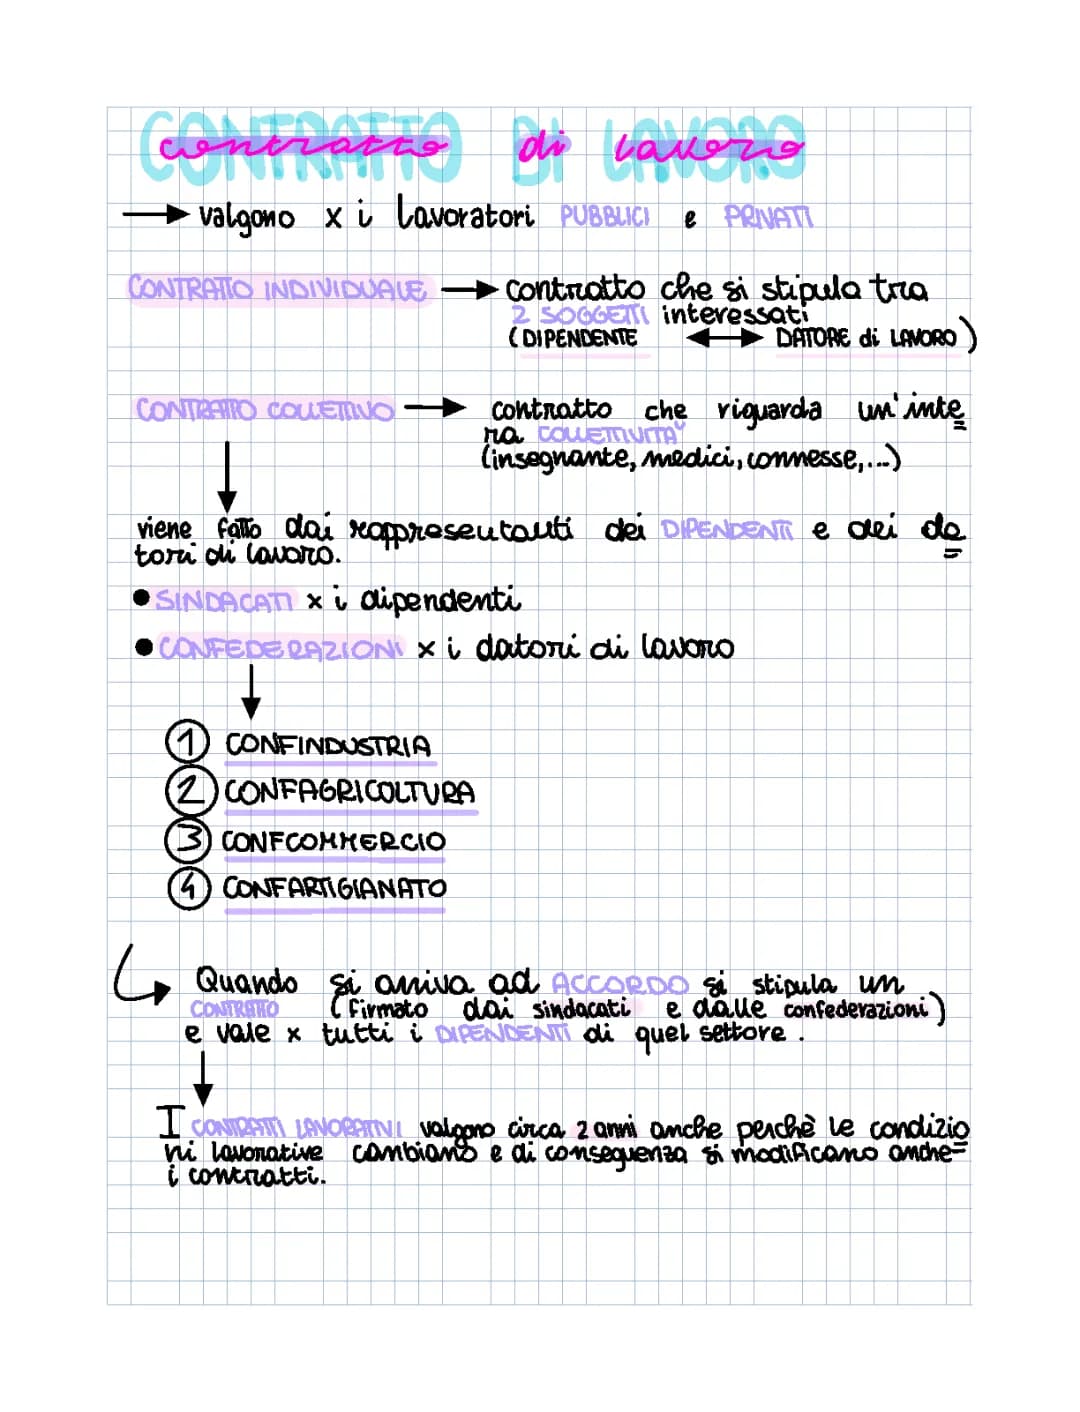 CONTRATTO DI LAVORO
contratto di lavoro
→ valgono x i lavoratori PUBBLICI e PRIVATI
CONTRATTO INDIVIDUALE → contratto che si stipula tra
2 SOGGETTI interessati
(DIPENDENTE ↔ DATORE di LAVORO)
CONTRATTO COLLETTIVO → contratto che riguarda un'inte
ra COLLETTIVITA'
(insegnante, medici, commesse,...)
viene fatto dai rappresentanti dei DIPENDENTI e dei da
tori di lavoro.
• SINDACATI x i dipendenti
• CONFEDERAZIONI x i datori di lavoro
1 CONFINDUSTRIA
2 CONFAGRICOLTURA
3 CONFCOMMERCIO
4 CONFARTIGIANATO
Quando si arriva ad ACCORDO si stipula un
CONTRATTO (firmato dai sindacati e dalle confederazioni)
e vale x tutti i DIPENDENTI di quel settore.
I CONTRATTI LAVORATIVI valgono circa 2 anni anche perchè le condizio
ni lavorative cambiano e di conseguenza si modificano anche
i contratti.